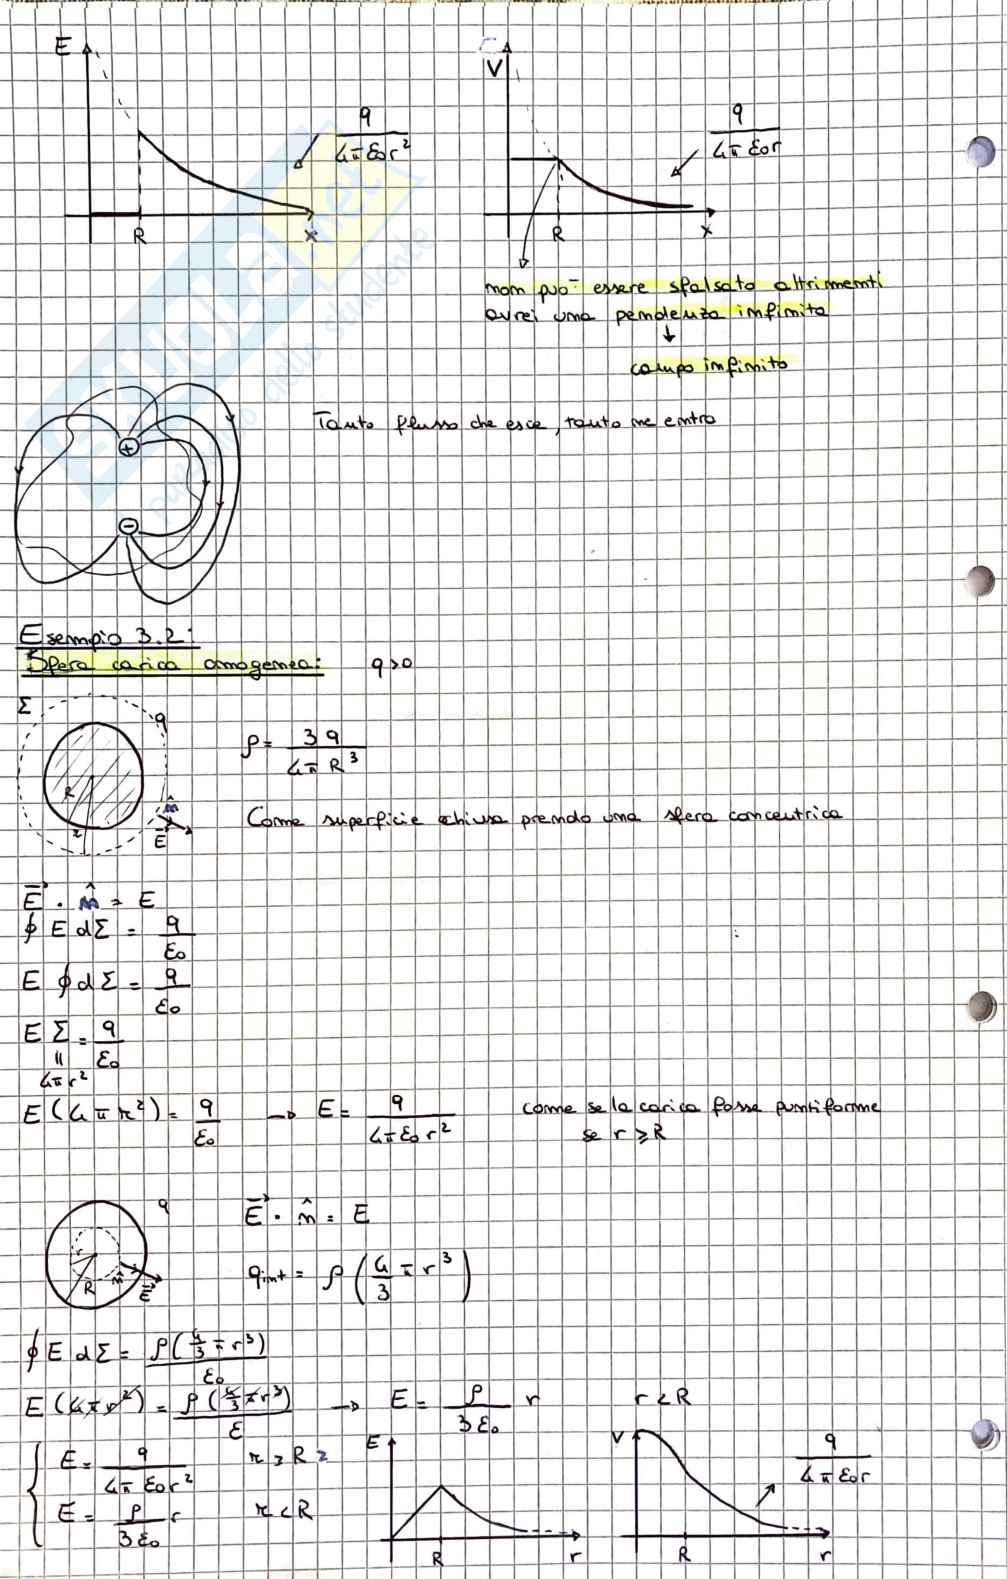 E
q
4π ε₀ r²
R
x
V
q
4π ε₀ r
R
x
non può essere sfalsato altrimenti
avrei una pendenza infinita
↓
campo infinito
Tanto flusso che esce, tanto ne entra
+
−
Esempio 3.2:
Sfera carica omogenea: q>0
Σ
q
R
r
n̂
E⃗
ρ = 3q / 4π R³
Come superficie chiusa prendo una sfera concentrica
E⃗ · n̂ = E
∮ E dΣ = q / ε₀
E ∮ dΣ = q / ε₀
E Σ = q / ε₀
॥
4π r²
E (4π r²) = q / ε₀ → E = q / 4π ε₀ r² come se la carica fosse puntiforme
se r ≥ R
q
r
R
n̂
E⃗
E⃗ · n̂ = E
qint = ρ (4/3 π r³)
∮ E dΣ = ρ (4/3 π r³) / ε₀
E (4π r²) = ρ (4/3 π r³) / ε → E = ρ / 3 ε₀ r r < R
E = q / 4π ε₀ r² r ≥ R
E = ρ / 3 ε₀ r r < R
E
R
r
V
q
4π ε₀ r
R
r